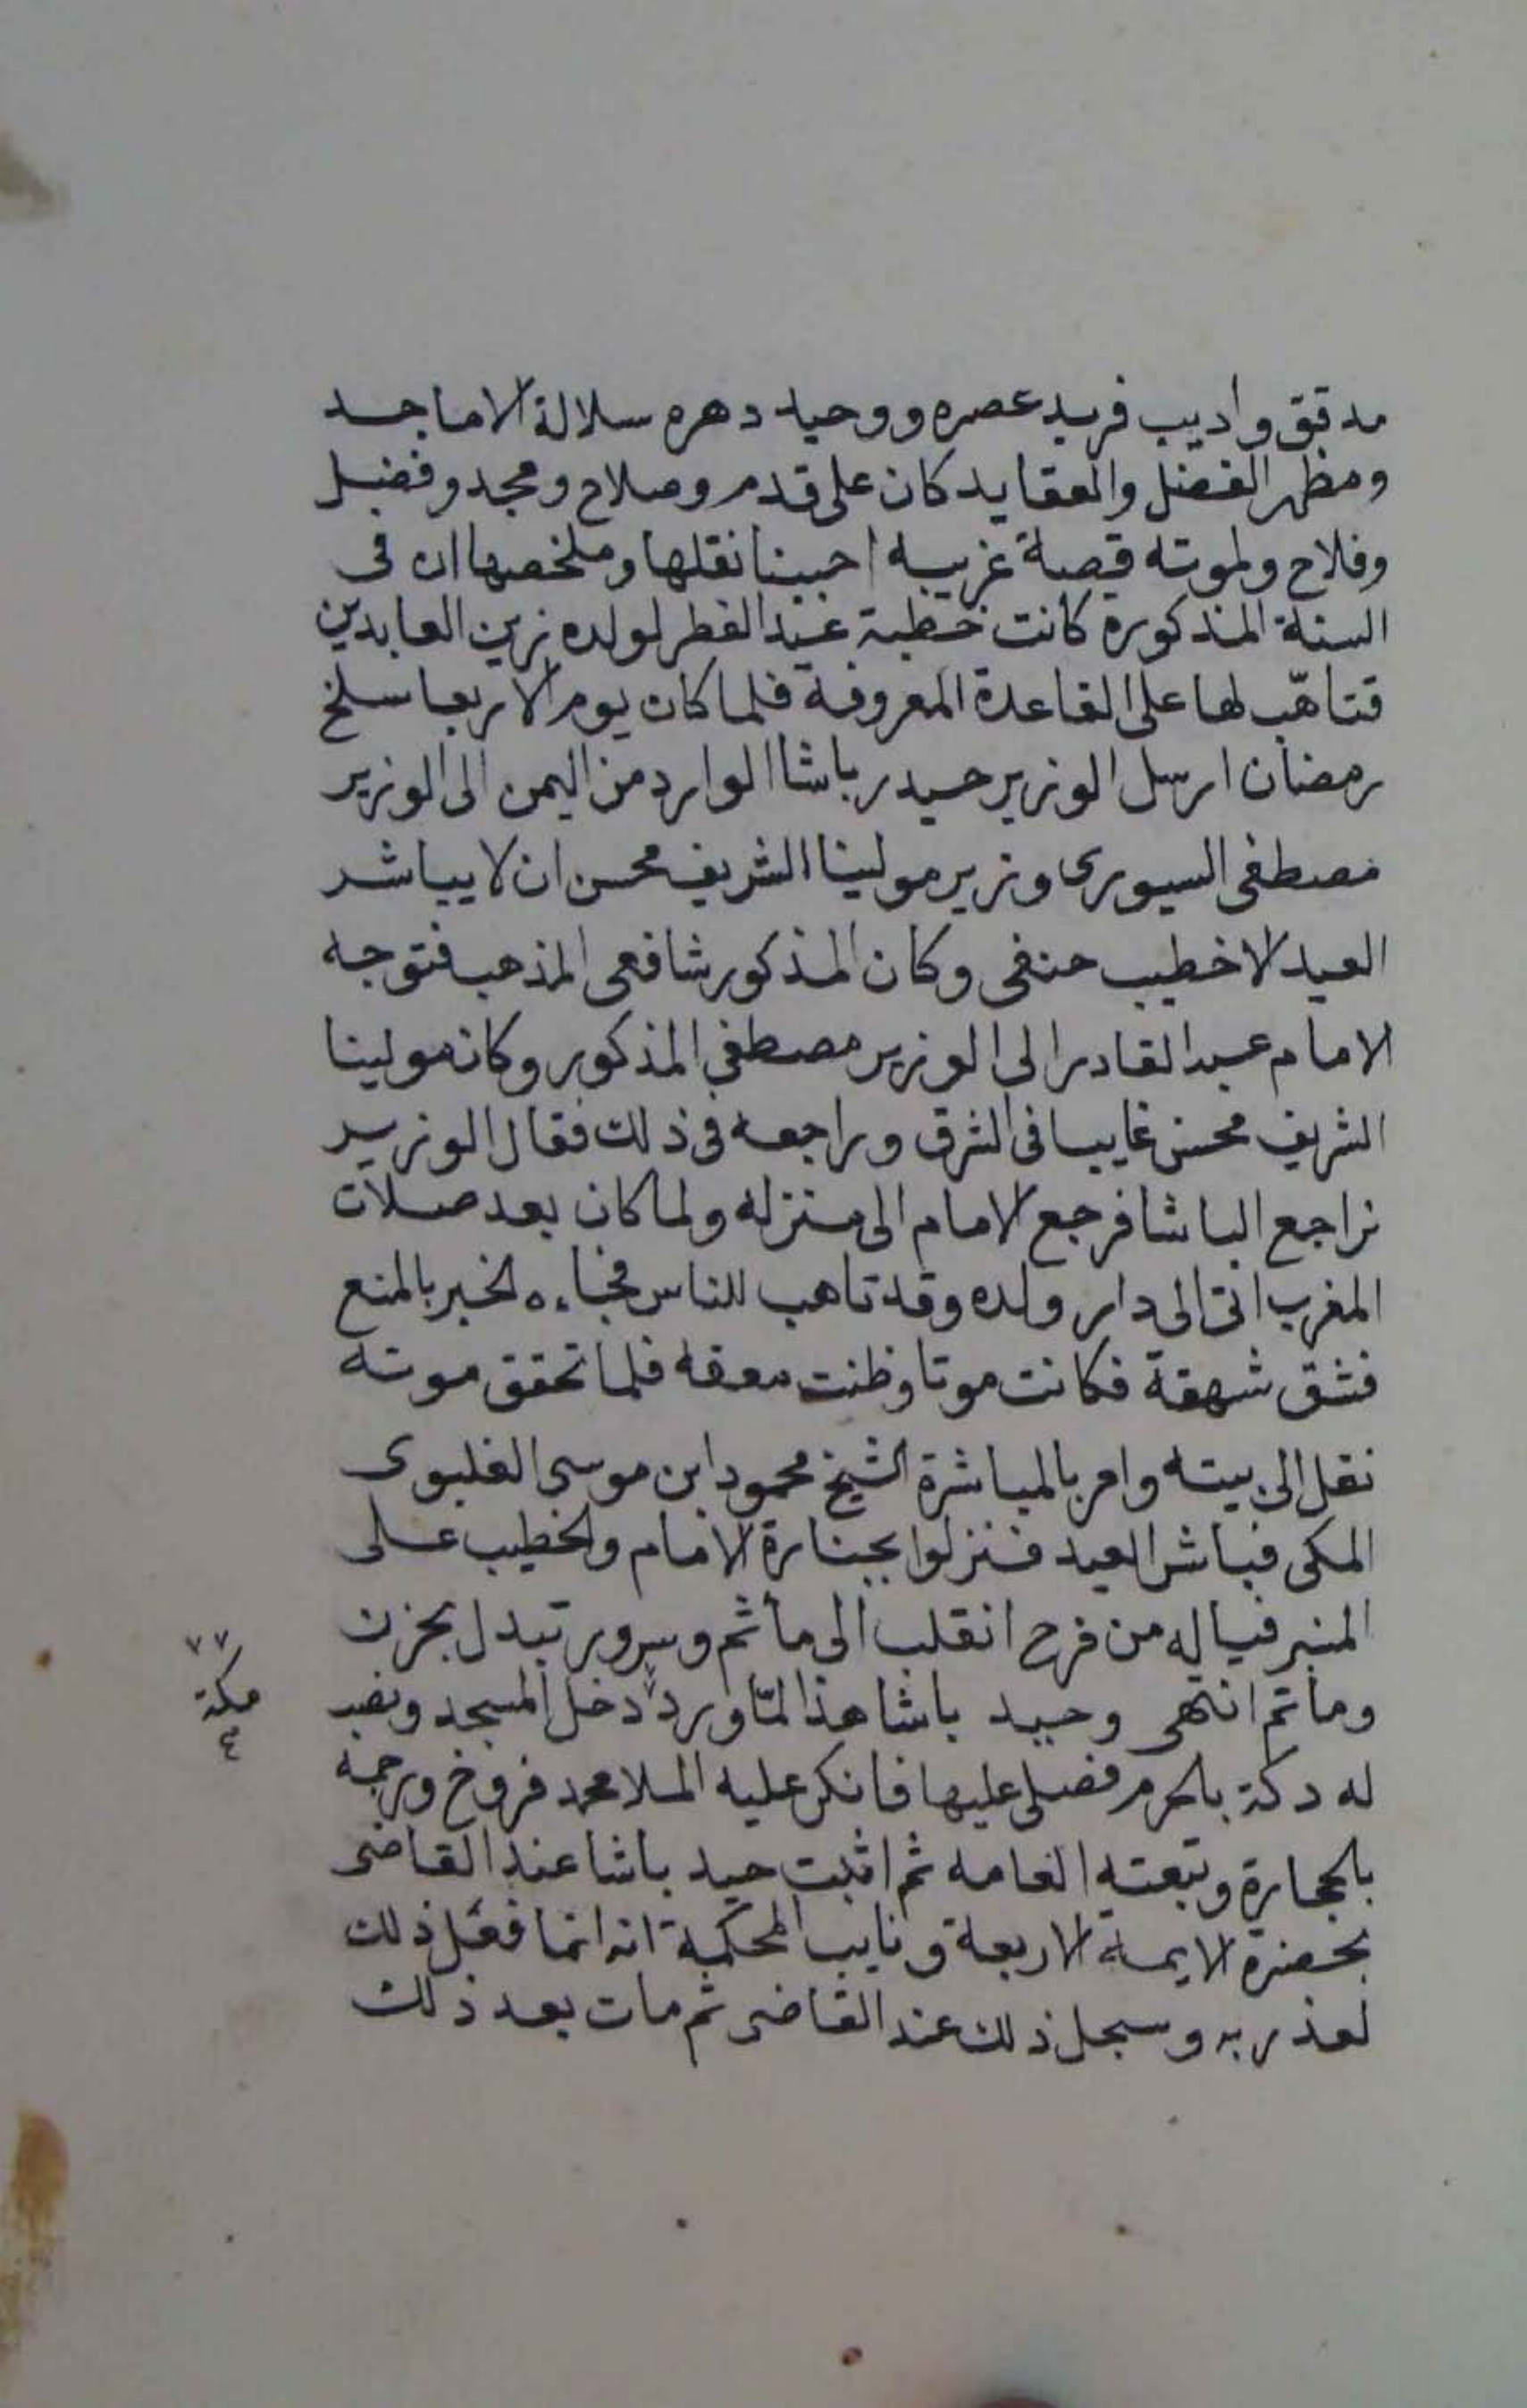 مدقق واديب فريد عصره ووحيد دهره سلالة الاماجد
ومظهر الفضل والعقايد كان على قدم وصلاح ومجد وفضل
وفلاح ولموته قصة غريبه احببنا نقلها وملخصها ان فى
السنة المذكوره كانت خطبة عيد الفطر لولده زين العابدين
فتاهّب لها على القاعدة المعروفة فلما كان يوم الاربعا سلخ
رمضان ارسل الوزير حيدر باشا الوارد من اليمن الى الوزير
مصطفى السيورى وزير مولينا الشريف محسن ان لا يباشر
العيد الا خطيب حنفى وكان المذكور شافعى المذهب فتوجه
الامام عبد القادر الى الوزير مصطفى المذكور وكان مولينا
الشريف محسن غايبا فى الشرق وراجعه فى ذلك فقال الوزير
نراجع الباشا فرجع الامام الى منزله ولما كان بعد صلاة
المغرب اتى الى دار ولده وقد تاهب للناس فجاءه الخبر بالمنع
فشق شهقة فكانت موتا وظنت صعقه فلما تحقق موته
نقل الى بيته وامر بالمباشرة الشيخ محمود ابن موسى القليوى
المكى فباشر العيد فنزلوا بجنازة الامام والخطيب على
المنبر فياله من فرح انقلب الى مأثم وسرور تبدل بحزن
وماتم انتهى وحيد باشا هذا لمّا ورد دخل المسجد ونصب
مكة
٤
له دكة بالحرم فصلى عليها فانكر عليه الملا محمد فروخ ورجمه
بالحجارة وتبعته العامه ثم اثبت حيد باشا عند القاضى
بحضرة الايمة الاربعة ونايب المحكمة انه انما فعل ذلك
لعذر به وسجل ذلك عند القاضى ثم مات بعد ذلك